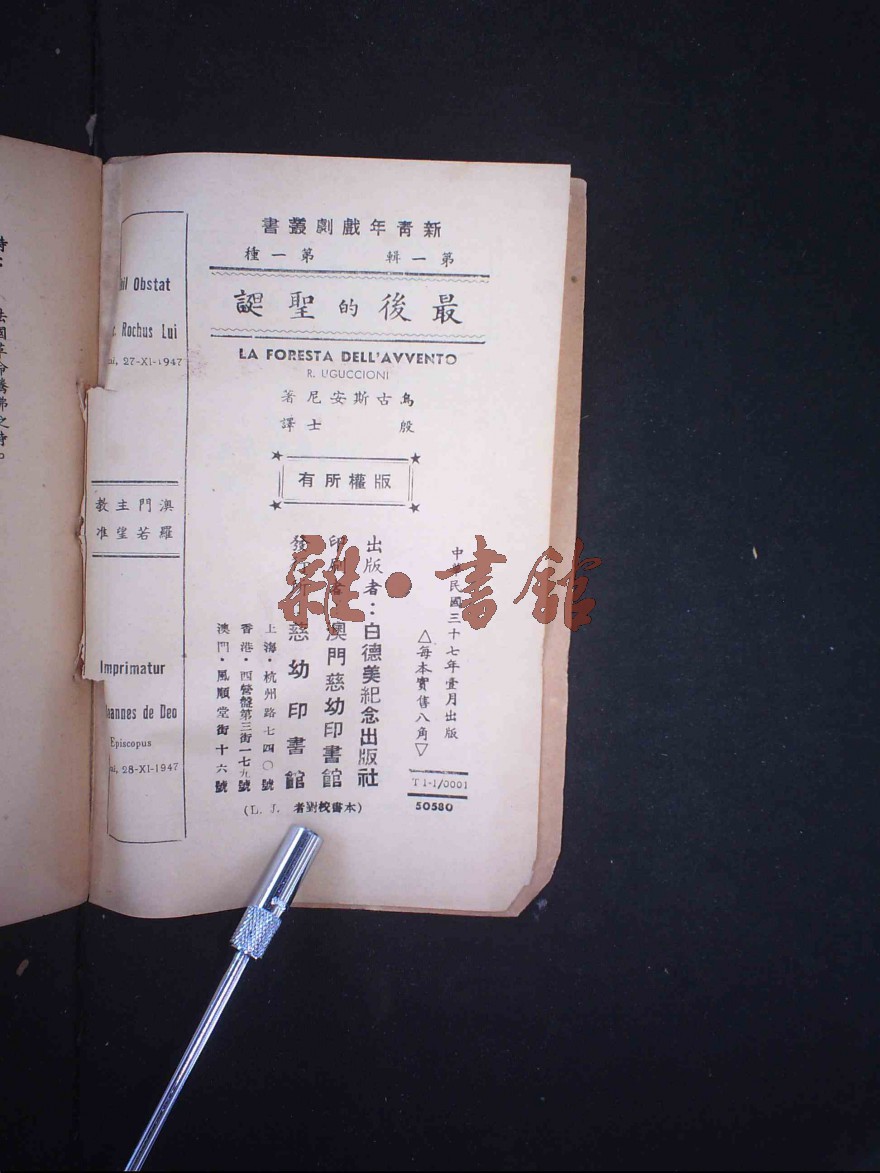 新青年戲劇叢書
第一輯 第一種
最後的聖誕
LA FORESTA DELL'AVVENTO
R. UGUCCIONI
烏古斯安尼著
殷士譯
版權所有
中華民國三十七年壹月出版
△每本實售八角▽
T 1-1/0001
50580
出版者：白德美紀念出版社
印刷者 澳門慈幼印書館
發行所 慈幼印書館
上海·杭州路七四〇號
香港·西營盤第三街一七九號
澳門·風順堂街十六號
(本書校對者 L. J.)
il Obstat
Rochus Lui
27-XI-1947
澳門主教
羅若望准
Imprimatur
annes de Deo
Episcopus
28-XI-1947
法國革命攜佛之時。
雜·書館